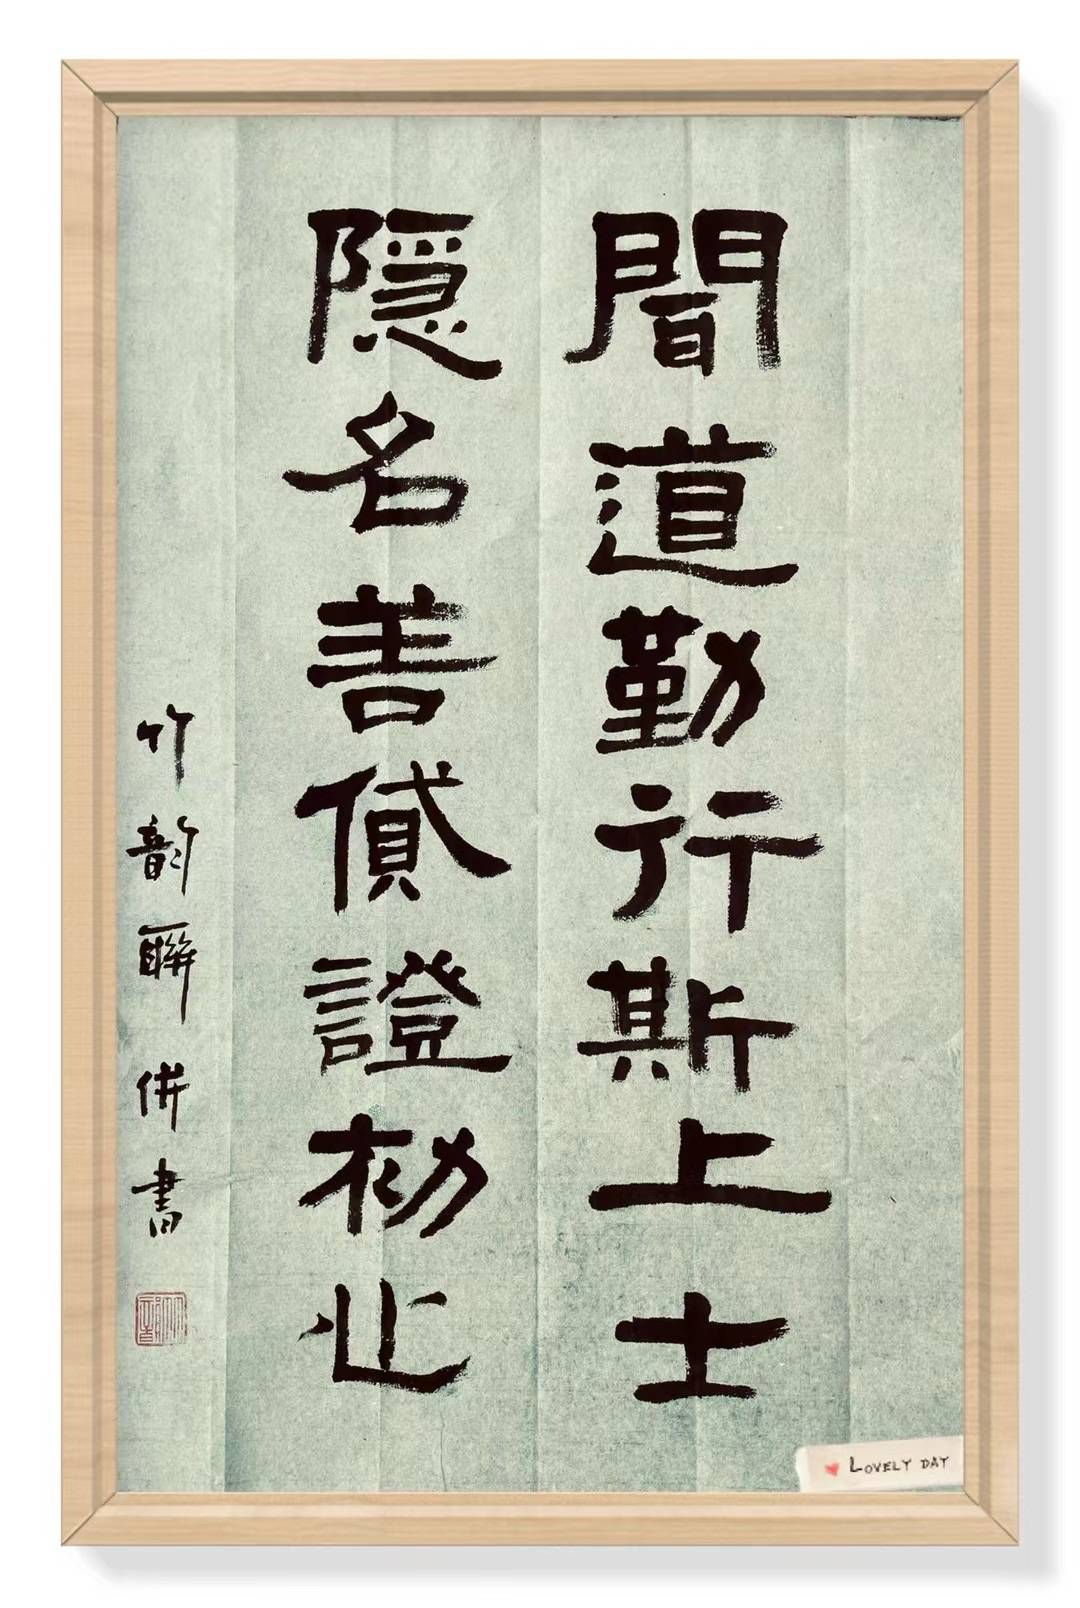 聞道勤行斯上士
隱名善貸證初心
竹韵聯併書
LOVELY DAY